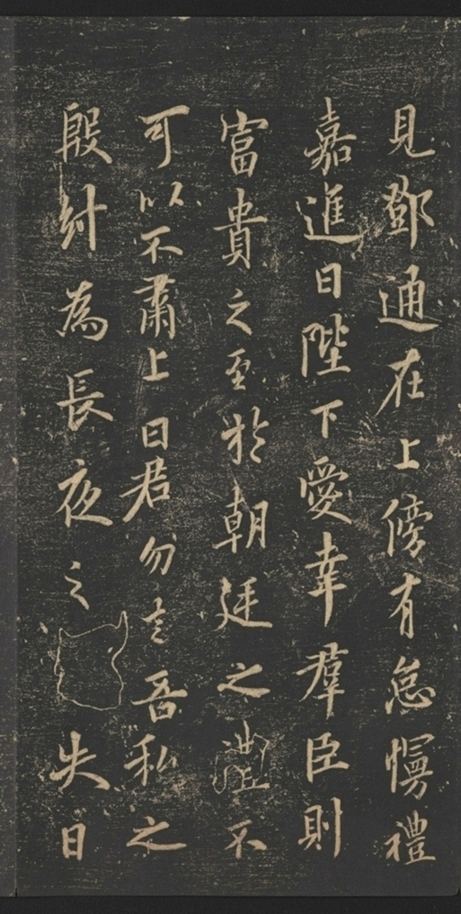 見鄧通在上傍有怠慢禮
嘉進曰陛下愛幸羣臣則
富貴之至於朝廷之不
可以不肅上曰君勿言吾私之
殷紂為長夜之失日